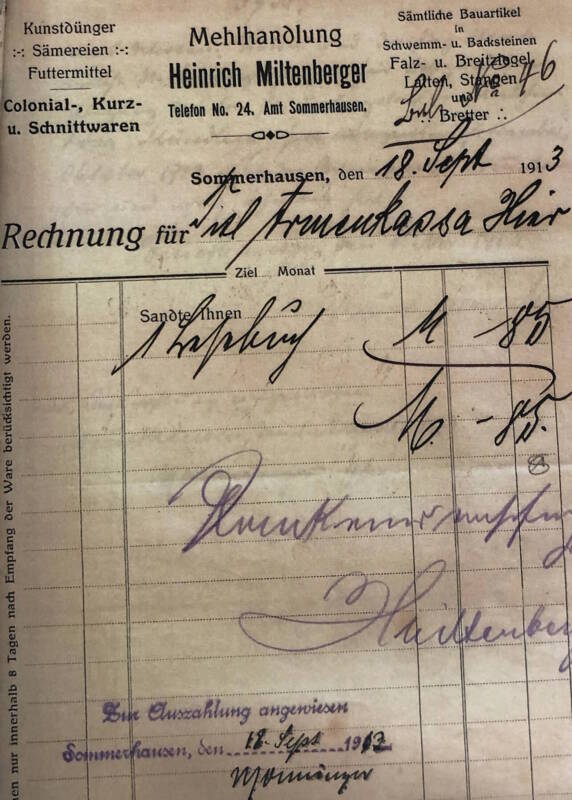 Kunstdünger
:-: Sämereien :-:
Futtermittel
Colonial-, Kurz-
u. Schnittwaren
Mehlhandlung
Heinrich Miltenberger
Telefon No. 24. Amt Sommerhausen.
Sämtliche Bauartikel
in
Schwemm- u. Backsteinen
Falz- u. Breitziegel
Latten, Stangen
und
.: Bretter :.
46
Sommerhausen, den 18. Sept 1913
Rechnung für Armenkassa Hier
Ziel Monat
Sandte Ihnen
1 Lesebuch M - 85
M - 85.
Miltenberg
Zur Auszahlung angewiesen
Sommerhausen, den 18. Sept 1913
en nur innerhalb 8 Tagen nach Empfang der Ware berücksichtigt werden.